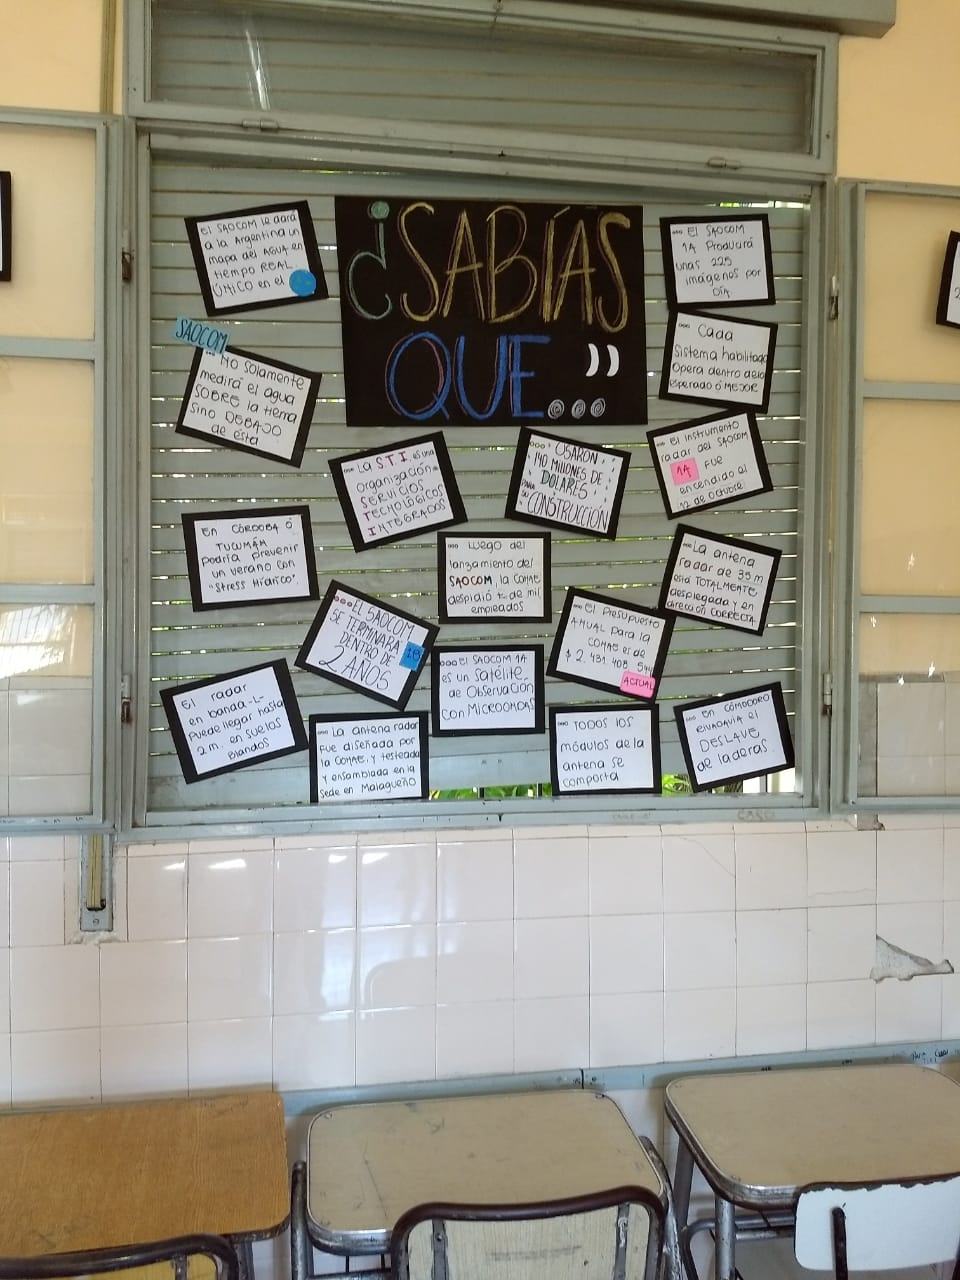 ¿SABÍAS
QUE...
El SAOCOM le dará
a la Argentina un
mapa del AGUA en
tiempo REAL.
ÚNICO en el
SAOCOM
NO solamente
medirá el agua
SOBRE la tierra
sino DEBAJO
de esta
EN CÓRDOBA Ó
TUCUMÁN
podría prevenir
un verano con
"Stress Hídrico".
El radar
en banda-L-
Puede llegar hasta
2m. en suelos
Blandos
La S.T.I. es una
organización
SERVICIOS
TECNOLÓGICOS
INTEGRADOS
USARON
140 MILLONES DE
DOLARES
PARA
SU
CONSTRUCCIÓN
Luego del
lanzamiento del
SAOCOM, la CONAE
despidió de mil
empleados
EL SAOCOM
SE TERMINARÁ 1B
DENTRO DE
2 AÑOS
El SAOCOM 1A
es un satélite
de Observación
con MICROONDAS
La antena radar
fue diseñada por
la CONAE, y testeada
y ensamblada en la
Sede en Malagueño
El SAOCOM
1A Producirá
unas 225
imágenes por
DÍA.
Cada
Sistema habilitado
Opera dentro de lo
esperado ó MEJOR
El instrumento
radar del SAOCOM
1A FUE
encendido el
12 de Octubre
La antena
radar de 35 m
está TOTALMENTE
desplegada y en
dirección CORRECTA.
El Presupuesto
ANUAL para la
CONAE es de
$ 2.431.408.594
ACTUAL
TODOS los
módulos de la
antena se
comporta
EN CÓMODORO
RIVADAVIA el
DESLAVE
de laderas.